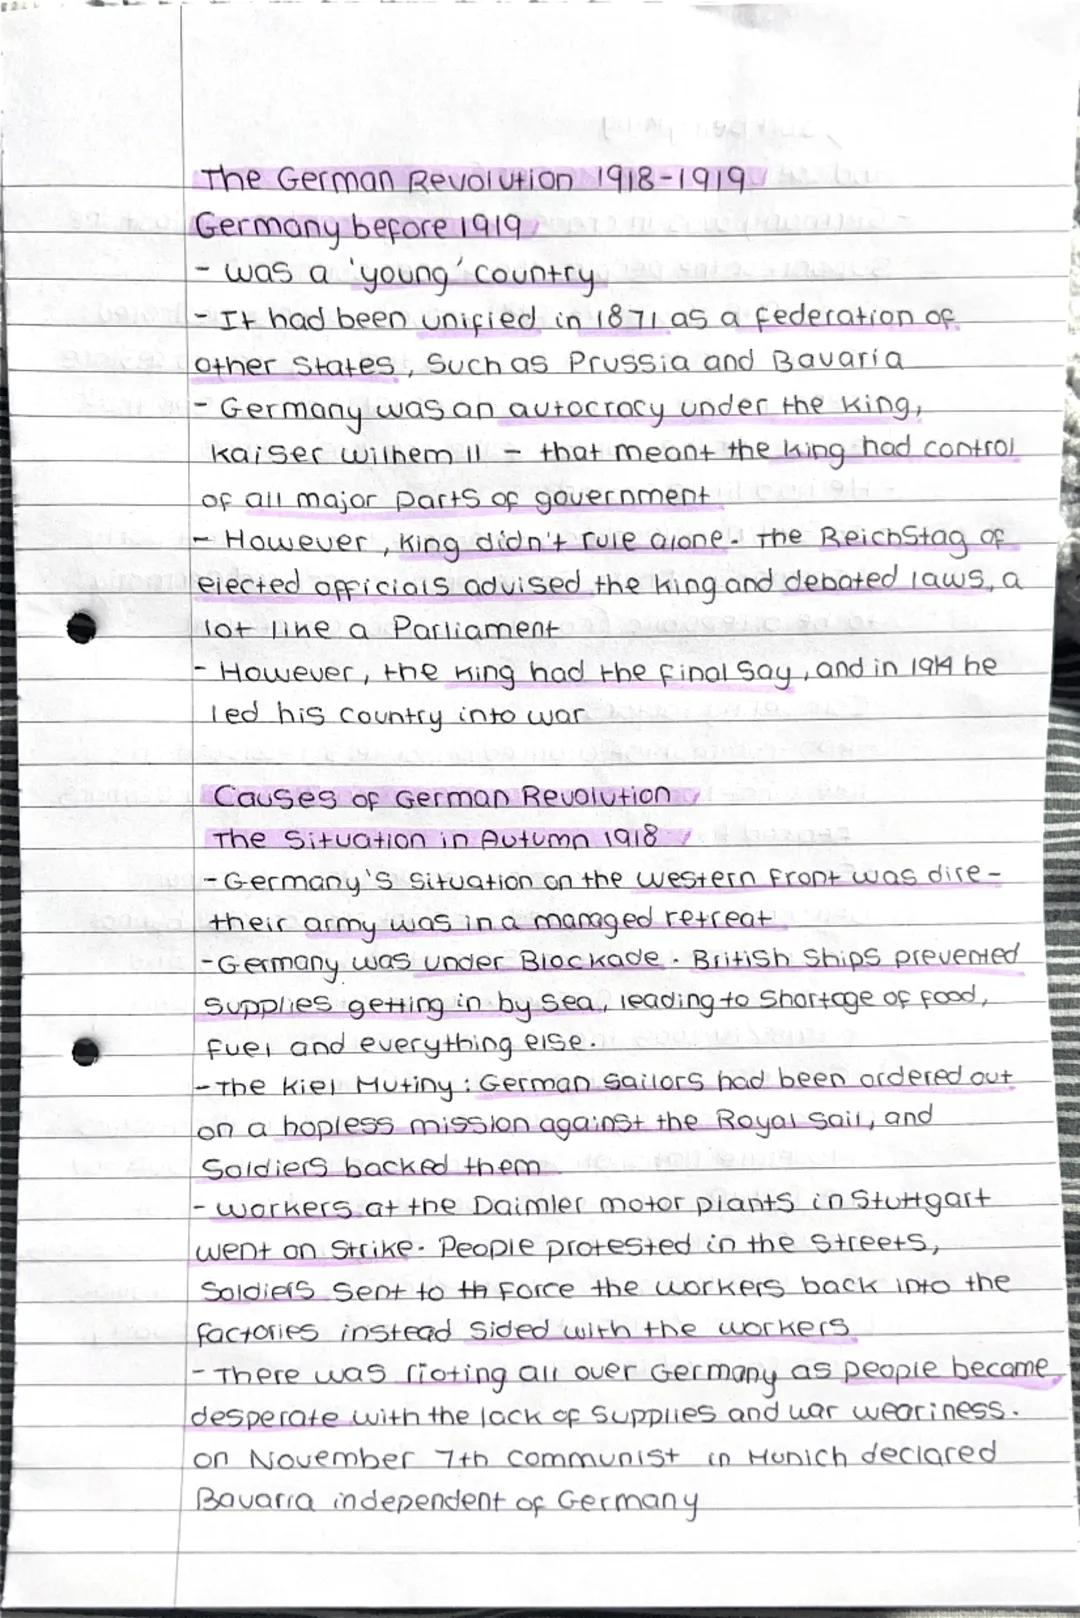 The German Revolution 1918-1919
Germany before 1919
- was a 'young' country
- It had been unified in 1871 as a federation of
other states, such as Prussia and Bavaria
- Germany was an autocracy under the king,
kaiser wilhem II - that meant the king had control
of all major parts of government
- However, king didn't rule alone. the Reichstag of
elected officials advised the king and debated laws, a
lot like a Parliament
- However, the king had the final say, and in 1914 he
led his country into war
Causes of German Revolution
The Situation in Autumn 1918
- Germany's situation on the western front was dire -
their army was in a managed retreat
- Germany was under Blockade. British ships prevented
supplies getting in by sea, leading to shortage of food,
fuel and everything else.
- The Kiel Mutiny: German sailors had been ordered out
on a hopless mission against the Royal sail, and
Soldiers backed them
- workers at the Daimler motor plants in Stuttgart
went on strike. People protested in the streets,
Soldiers sent to th force the workers back into the
factories instead sided with the workers.
- There was rioting all over Germany as people became
desperate with the lack of supplies and war weariness.
on November 7th communist in Munich declared
Bavaria independent of Germany